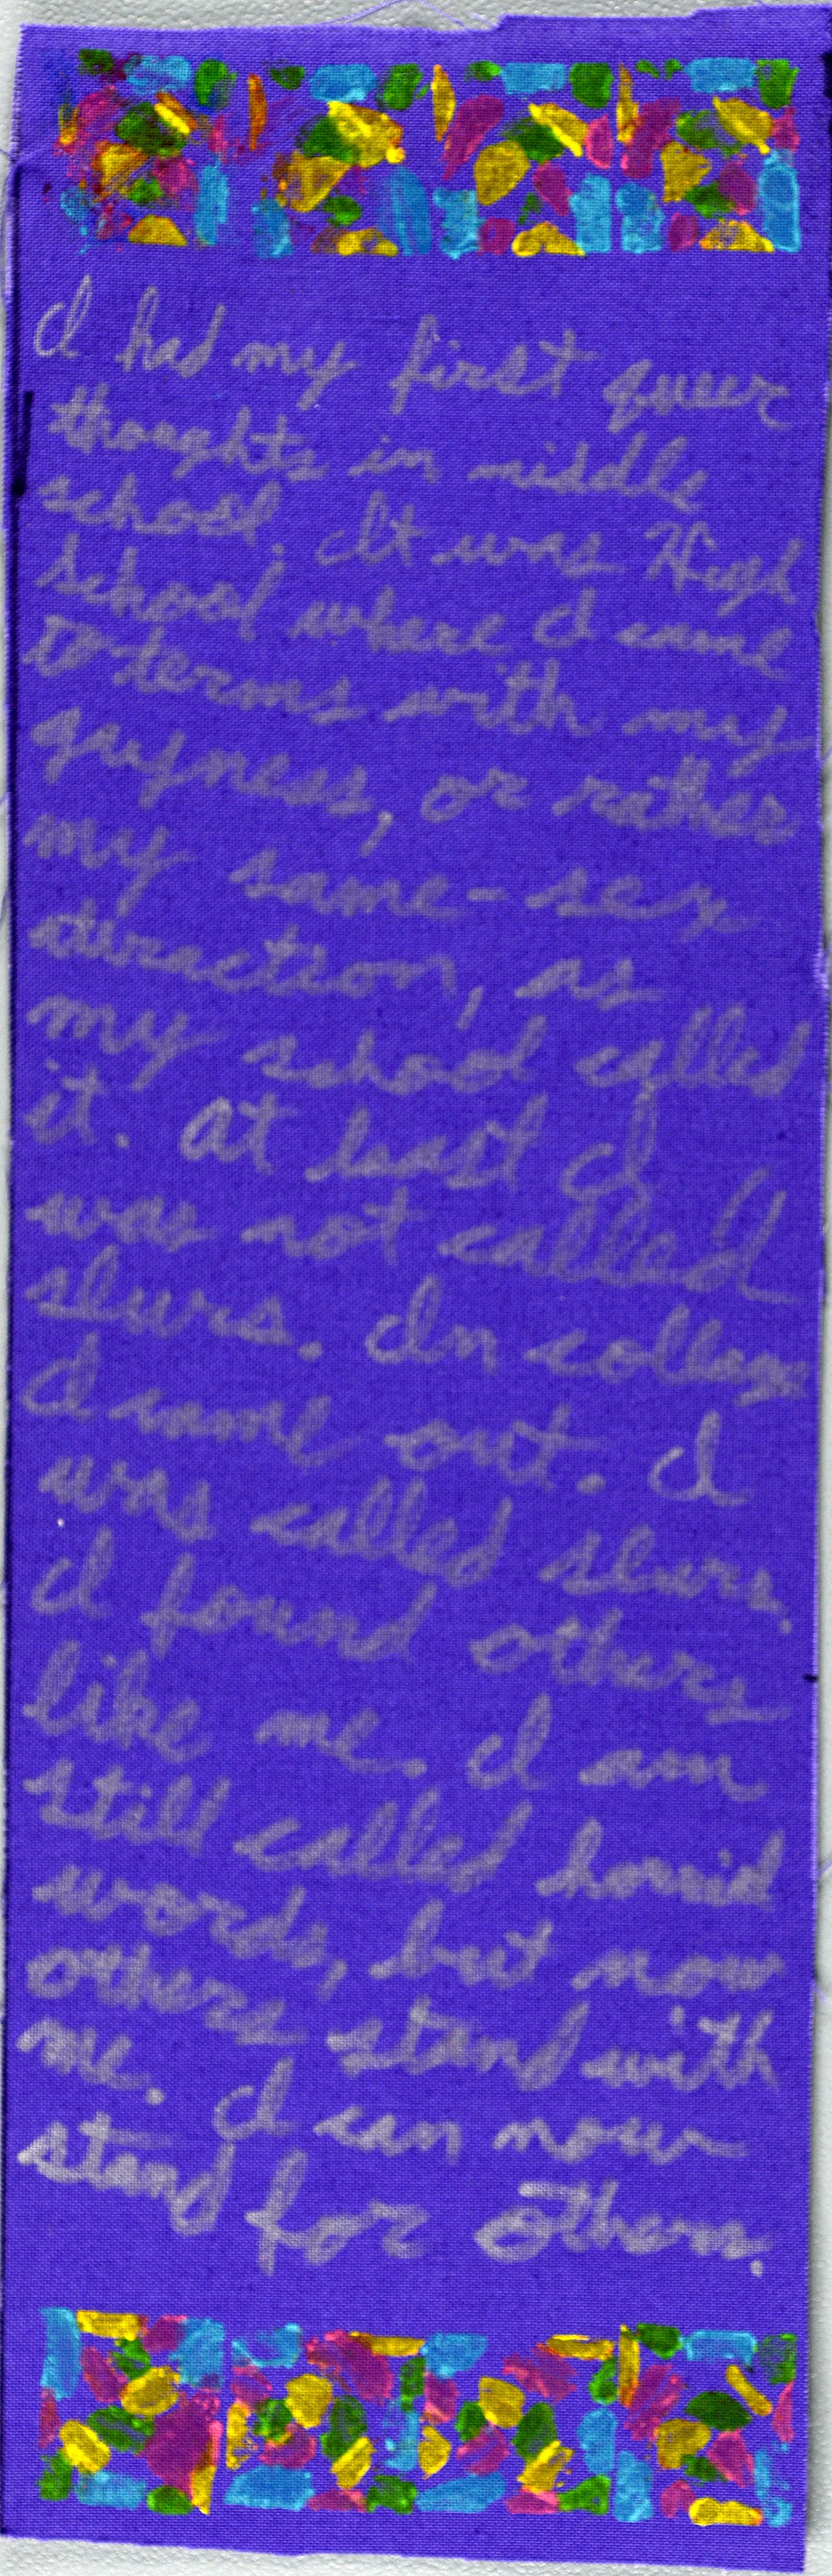 I had my first queer
thoughts in middle
school. It was High
school where I came
to terms with my
gayness, or rather
my same-sex
attraction, as
my school called
it. At least I
was not called
slurs. In college
I came out. I
was called slurs.
I found others
like me. I am
still called horrid
words, but now
others stand with
me. I can now
stand for others.